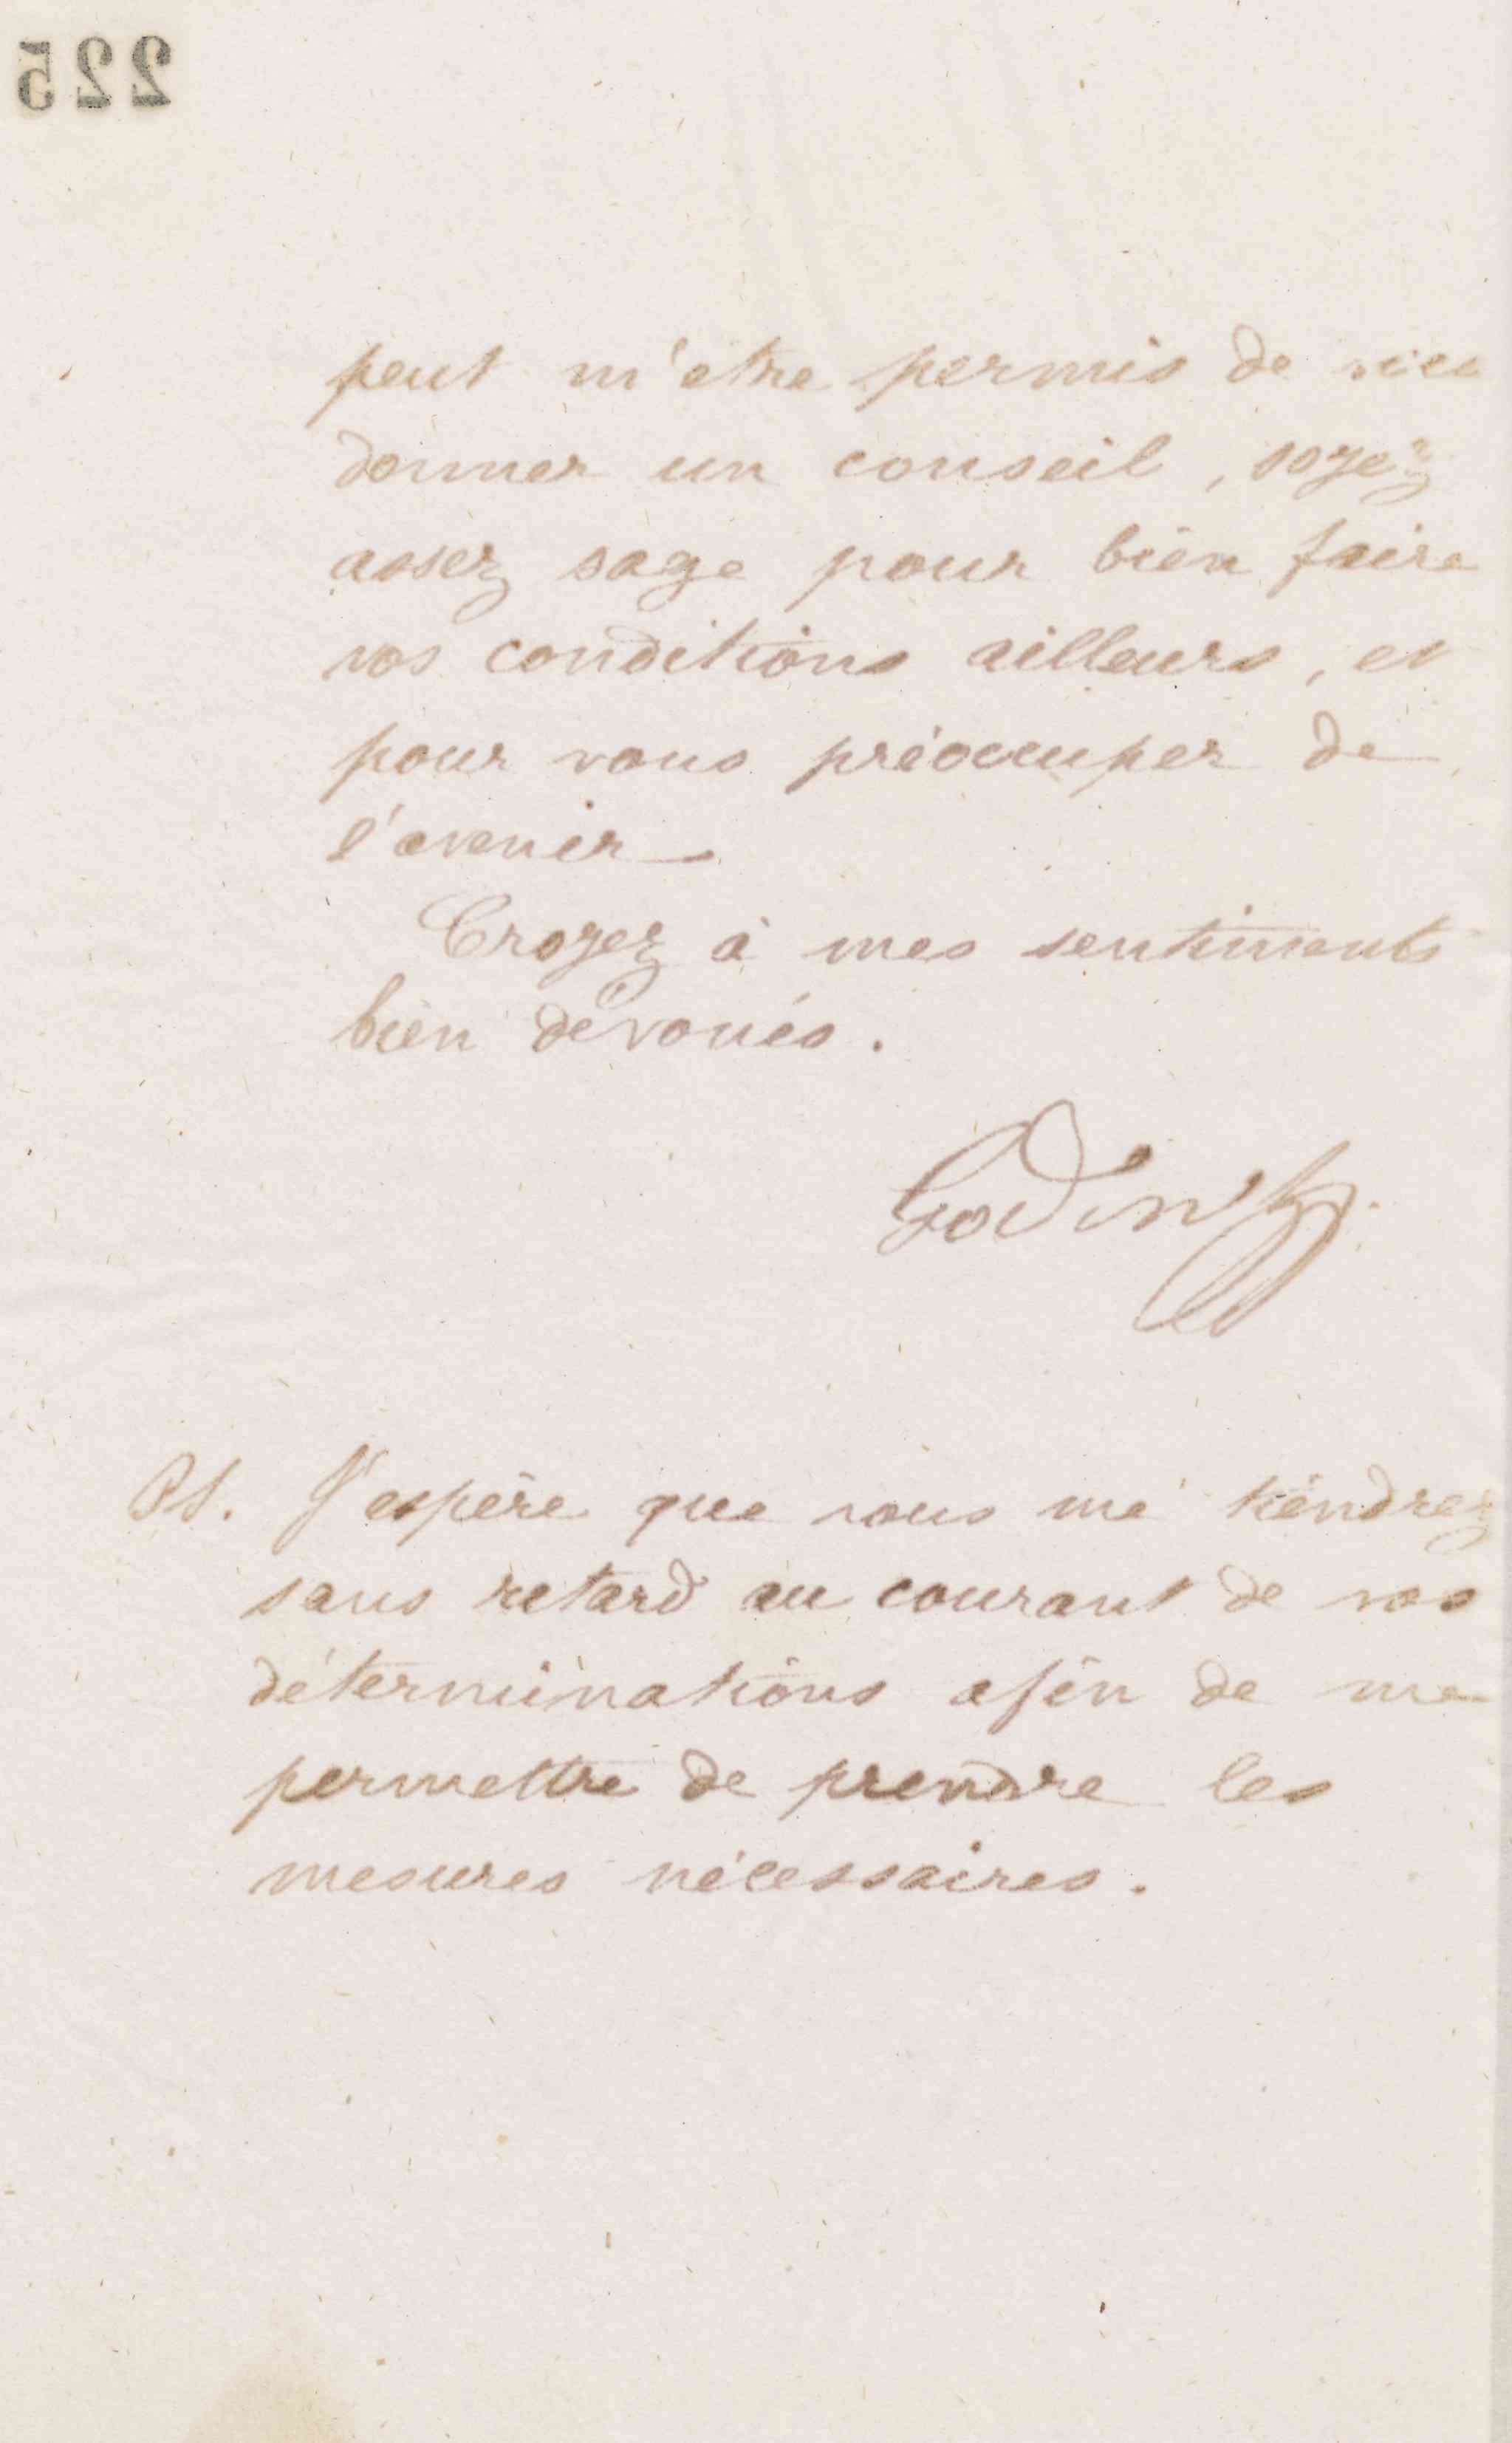 225
peut m'etre permis de
donner un conseil, soyez
assez sage pour bien faire
vos conditions ailleurs, et
pour vous préoccuper de
l'avenir
Croyez à mes sentiments
bien dévoués.
Godin
PS. J'espère que vous me tiendrez
sans retard au courant de vos
déterminations afin de me
permettre de prendre les
mesures nécessaires.